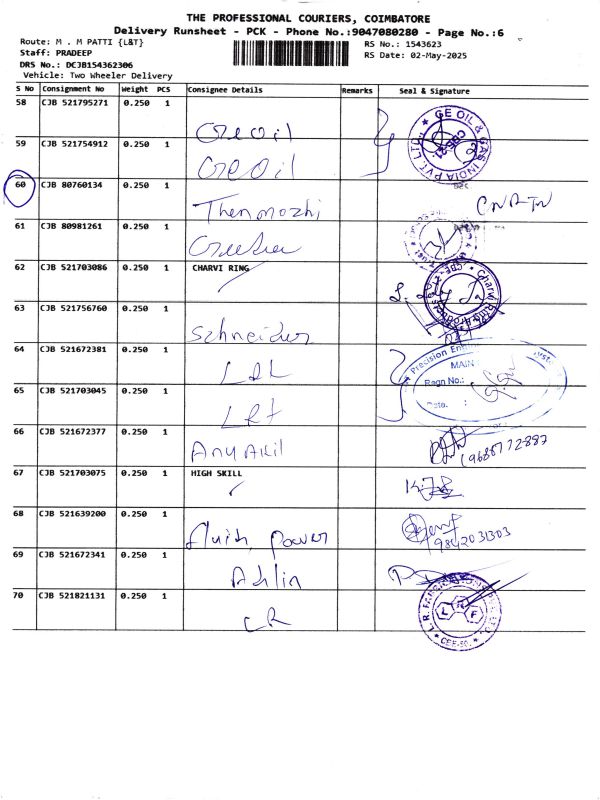 THE PROFESSIONAL COURIERS, COIMBATORE
Delivery Runsheet - PCK - Phone No.:9047080280 - Page No.:6
Route: M . M PATTI {L&T}
RS No.: 1543623
Staff: PRADEEP
RS Date: 02-May-2025
DRS No.: DCJB154362306
Vehicle: Two Wheeler Delivery
S No Consignment No Weight PCS Consignee Details Remarks Seal & Signature
58 CJB 521795271 0.250 1 Geoil
GE OIL & GAS INDIA PVT. LTD.
59 CJB 521754912 0.250 1 Geoil
60 CJB 80760134 0.250 1 Thenmozhi
61 CJB 80981261 0.250 1
62 CJB 521703086 0.250 1 CHARVI RING
63 CJB 521756760 0.250 1 Schneider
64 CJB 521672381 0.250 1 L&T
Precision
MAIN
Regn No.:
Date. :
65 CJB 521703045 0.250 1 L&T
66 CJB 521672377 0.250 1 Any Akil
9688772887
67 CJB 521703075 0.250 1 HIGH SKILL
68 CJB 521639200 0.250 1 fluid power
9842031303
69 CJB 521672341 0.250 1 Adlin
70 CJB 521821131 0.250 1 LR
L R F